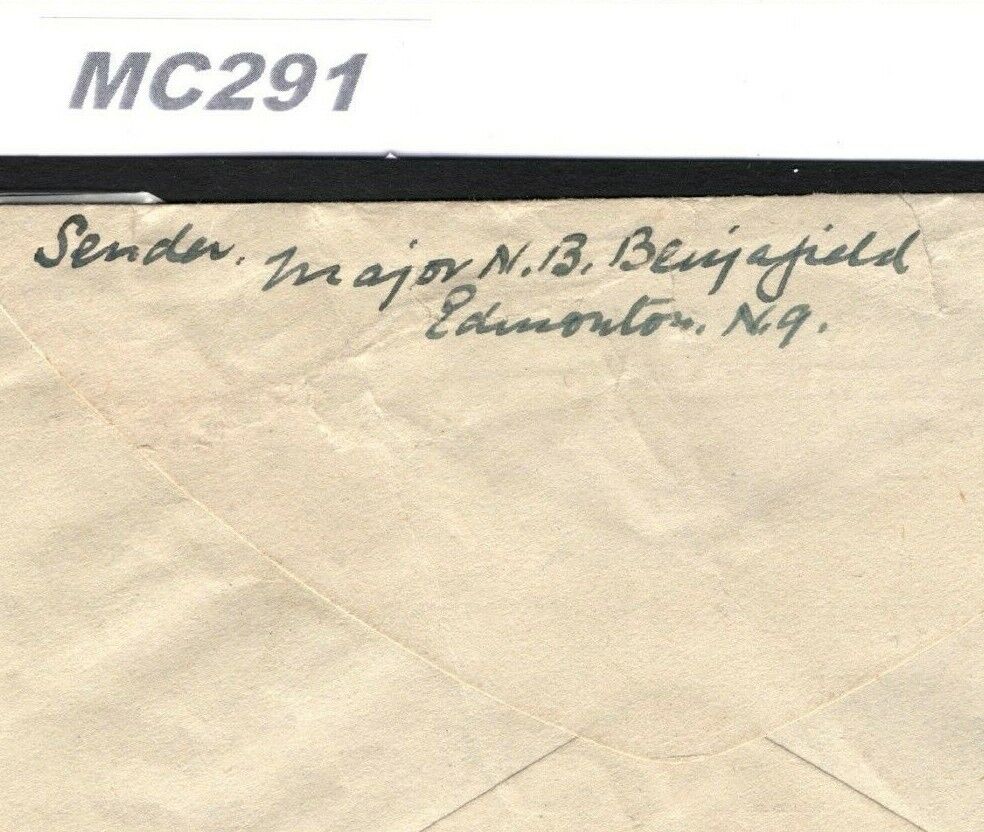 MC291
Sender. Major N.B. Benjafield
Edmonton. N.9.